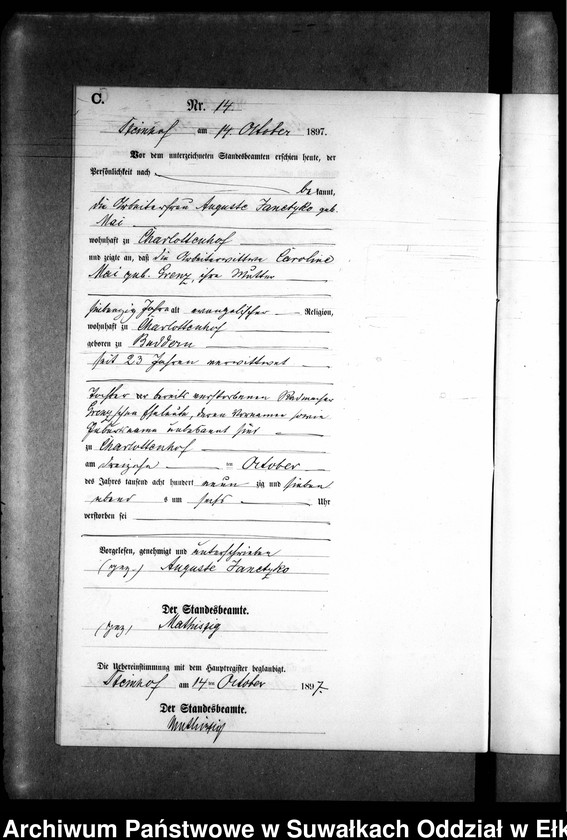 C.
Nr. 14
Steinhof am 14 October 1897.
Vor dem unterzeichneten Standesbeamten erschien heute, der
Persönlichkeit nach
be kannt,
die Arbeiterfrau Auguste Janetzko geb.
Mai
wohnhaft zu Charlottenhof
und zeigte an, daß die Arbeiterwittwe Caroline
Mai geb. Grenz, ihre Mutter
siebenzig Jahre alt evangelischer Religion,
wohnhaft zu Charlottenhof
geboren zu Buddern
seit 23 Jahren verwittwet
Tochter der bereits verstorbenen Radmacher
Grenz'schen Eheleute, deren Vornamen sowie
Geburtsname unbekannt sind
zu Charlottenhof
am dreizehn ten October
des Jahres tausend acht hundert neun zig und sieben
abend s um sechs Uhr
verstorben sei
Vorgelesen, genehmigt und unterschrieben
(gez.) Auguste Janetzko
Der Standesbeamte.
(gez)
Die Uebereinstimmung mit dem Hauptregister beglaubigt.
Steinhof am 14 ten October 1897.
Der Standesbeamte.
Archiwum Państwowe w Suwałkach Oddział w Ełk